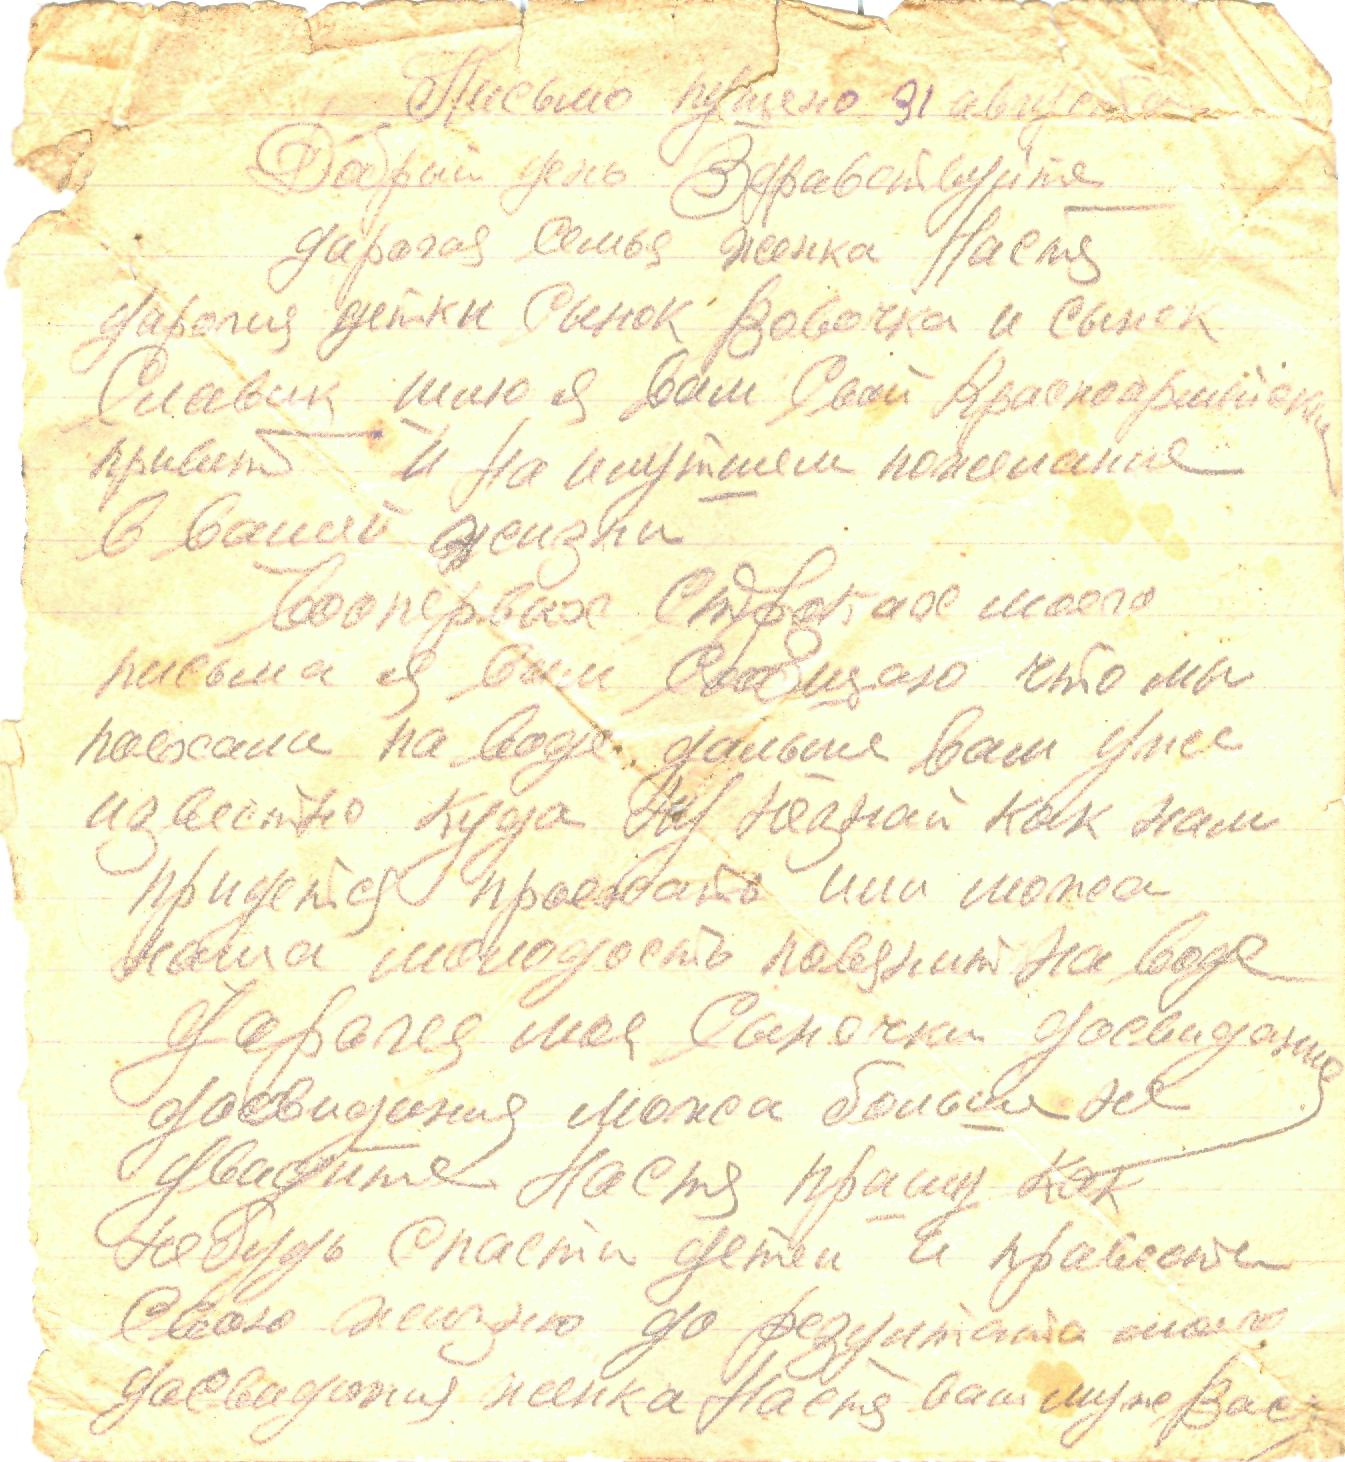 Письмо пущено 31 августа
Добрый день Здравствуйте
дарогая семья женка Настя
дарогия детки Сынок Вовочка и сынок
Славик шлю я вам Свой Красноармейски
привет И На илутшем пожелание
в вашей жизни
Воопервых Строках моего
письма я вам Сообщаю что мы
поехали на воде дальше вам уже
известно куда Ну Незнай как нам
придется проежать илиможа
наша молодость повянит На воде
Дарогея мое Сыночки досвидания
досвидания можа больше не
увидите Настя прашу Как
небудь спасти детей И правести
Свою жизню до резултата моего
досвидания женка Настя ваш муж Вас